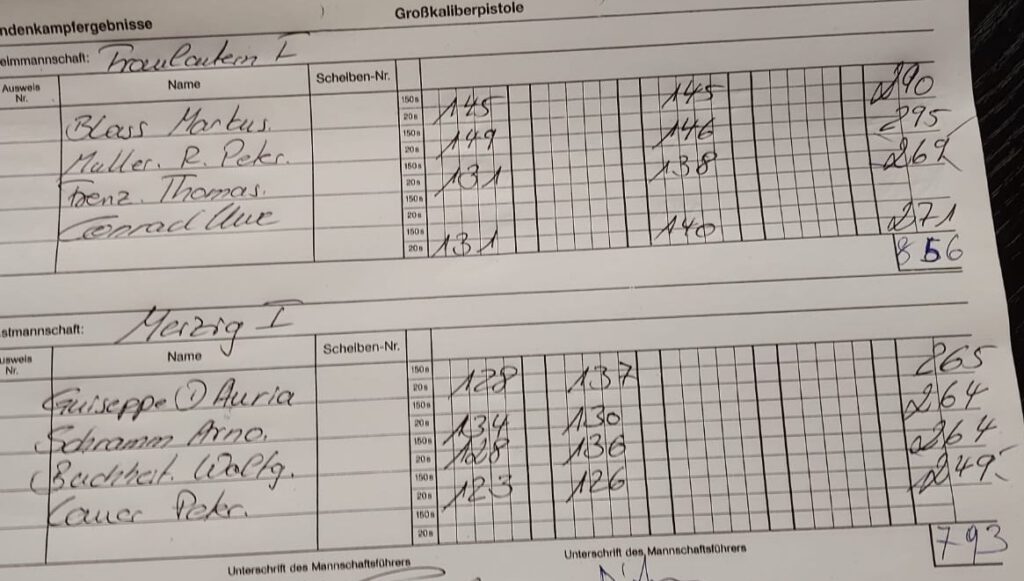 ndenkampfergebnisse Großkaliberpistole
eimmannschaft: Fraulautern I
Ausweis Nr. Name Scheiben-Nr.
Blass Markus. 150s 20s 145 145 290
Müller. R. Peter. 150s 20s 149 146 295
Frenz. Thomas. 150s 20s 131 138 269
Conrad Uwe 150s 20s 131 140 271
150s 20s 856
stmannschaft: Merzig I
usweis Nr. Name Scheiben-Nr.
Guiseppe D Auria 150s 20s 128 137 265
Schramm Arno. 150s 20s 134 130 264
Buchheit. Wolfg. 150s 20s 128 136 264
Lauer Peter. 150s 20s 123 126 249
150s 20s 793
Unterschrift des Mannschaftsführers Unterschrift des Mannschaftsführers